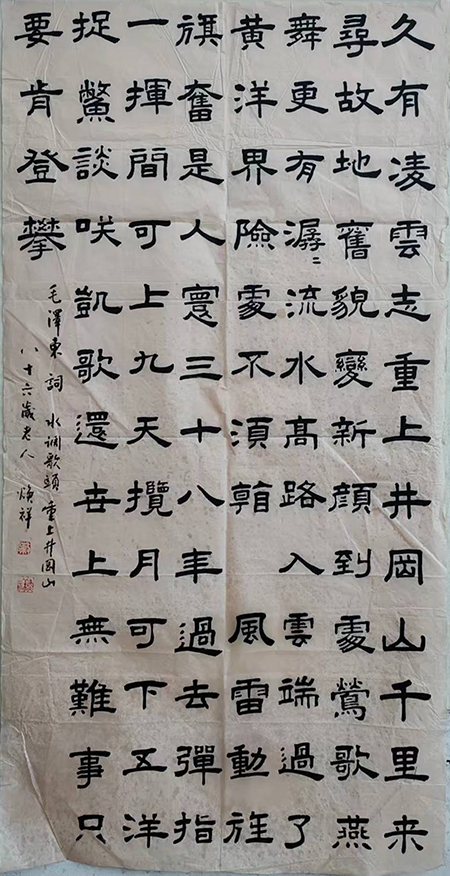 久有凌雲志重上井岡山千里来
尋故地舊貌變新顔到處鶯歌燕
舞更有潺〻流水髙路入雲端過了
黄洋界險處不須 風雷動旌
旗奮是人寰三十八年過去彈指
一揮間可上九天攬月可下五洋
捉鱉談咲凱歌還世上無難事只
要肯登攀
毛澤東詞 水调歌頭 重上井岡山
八十六歲老人 煥祥